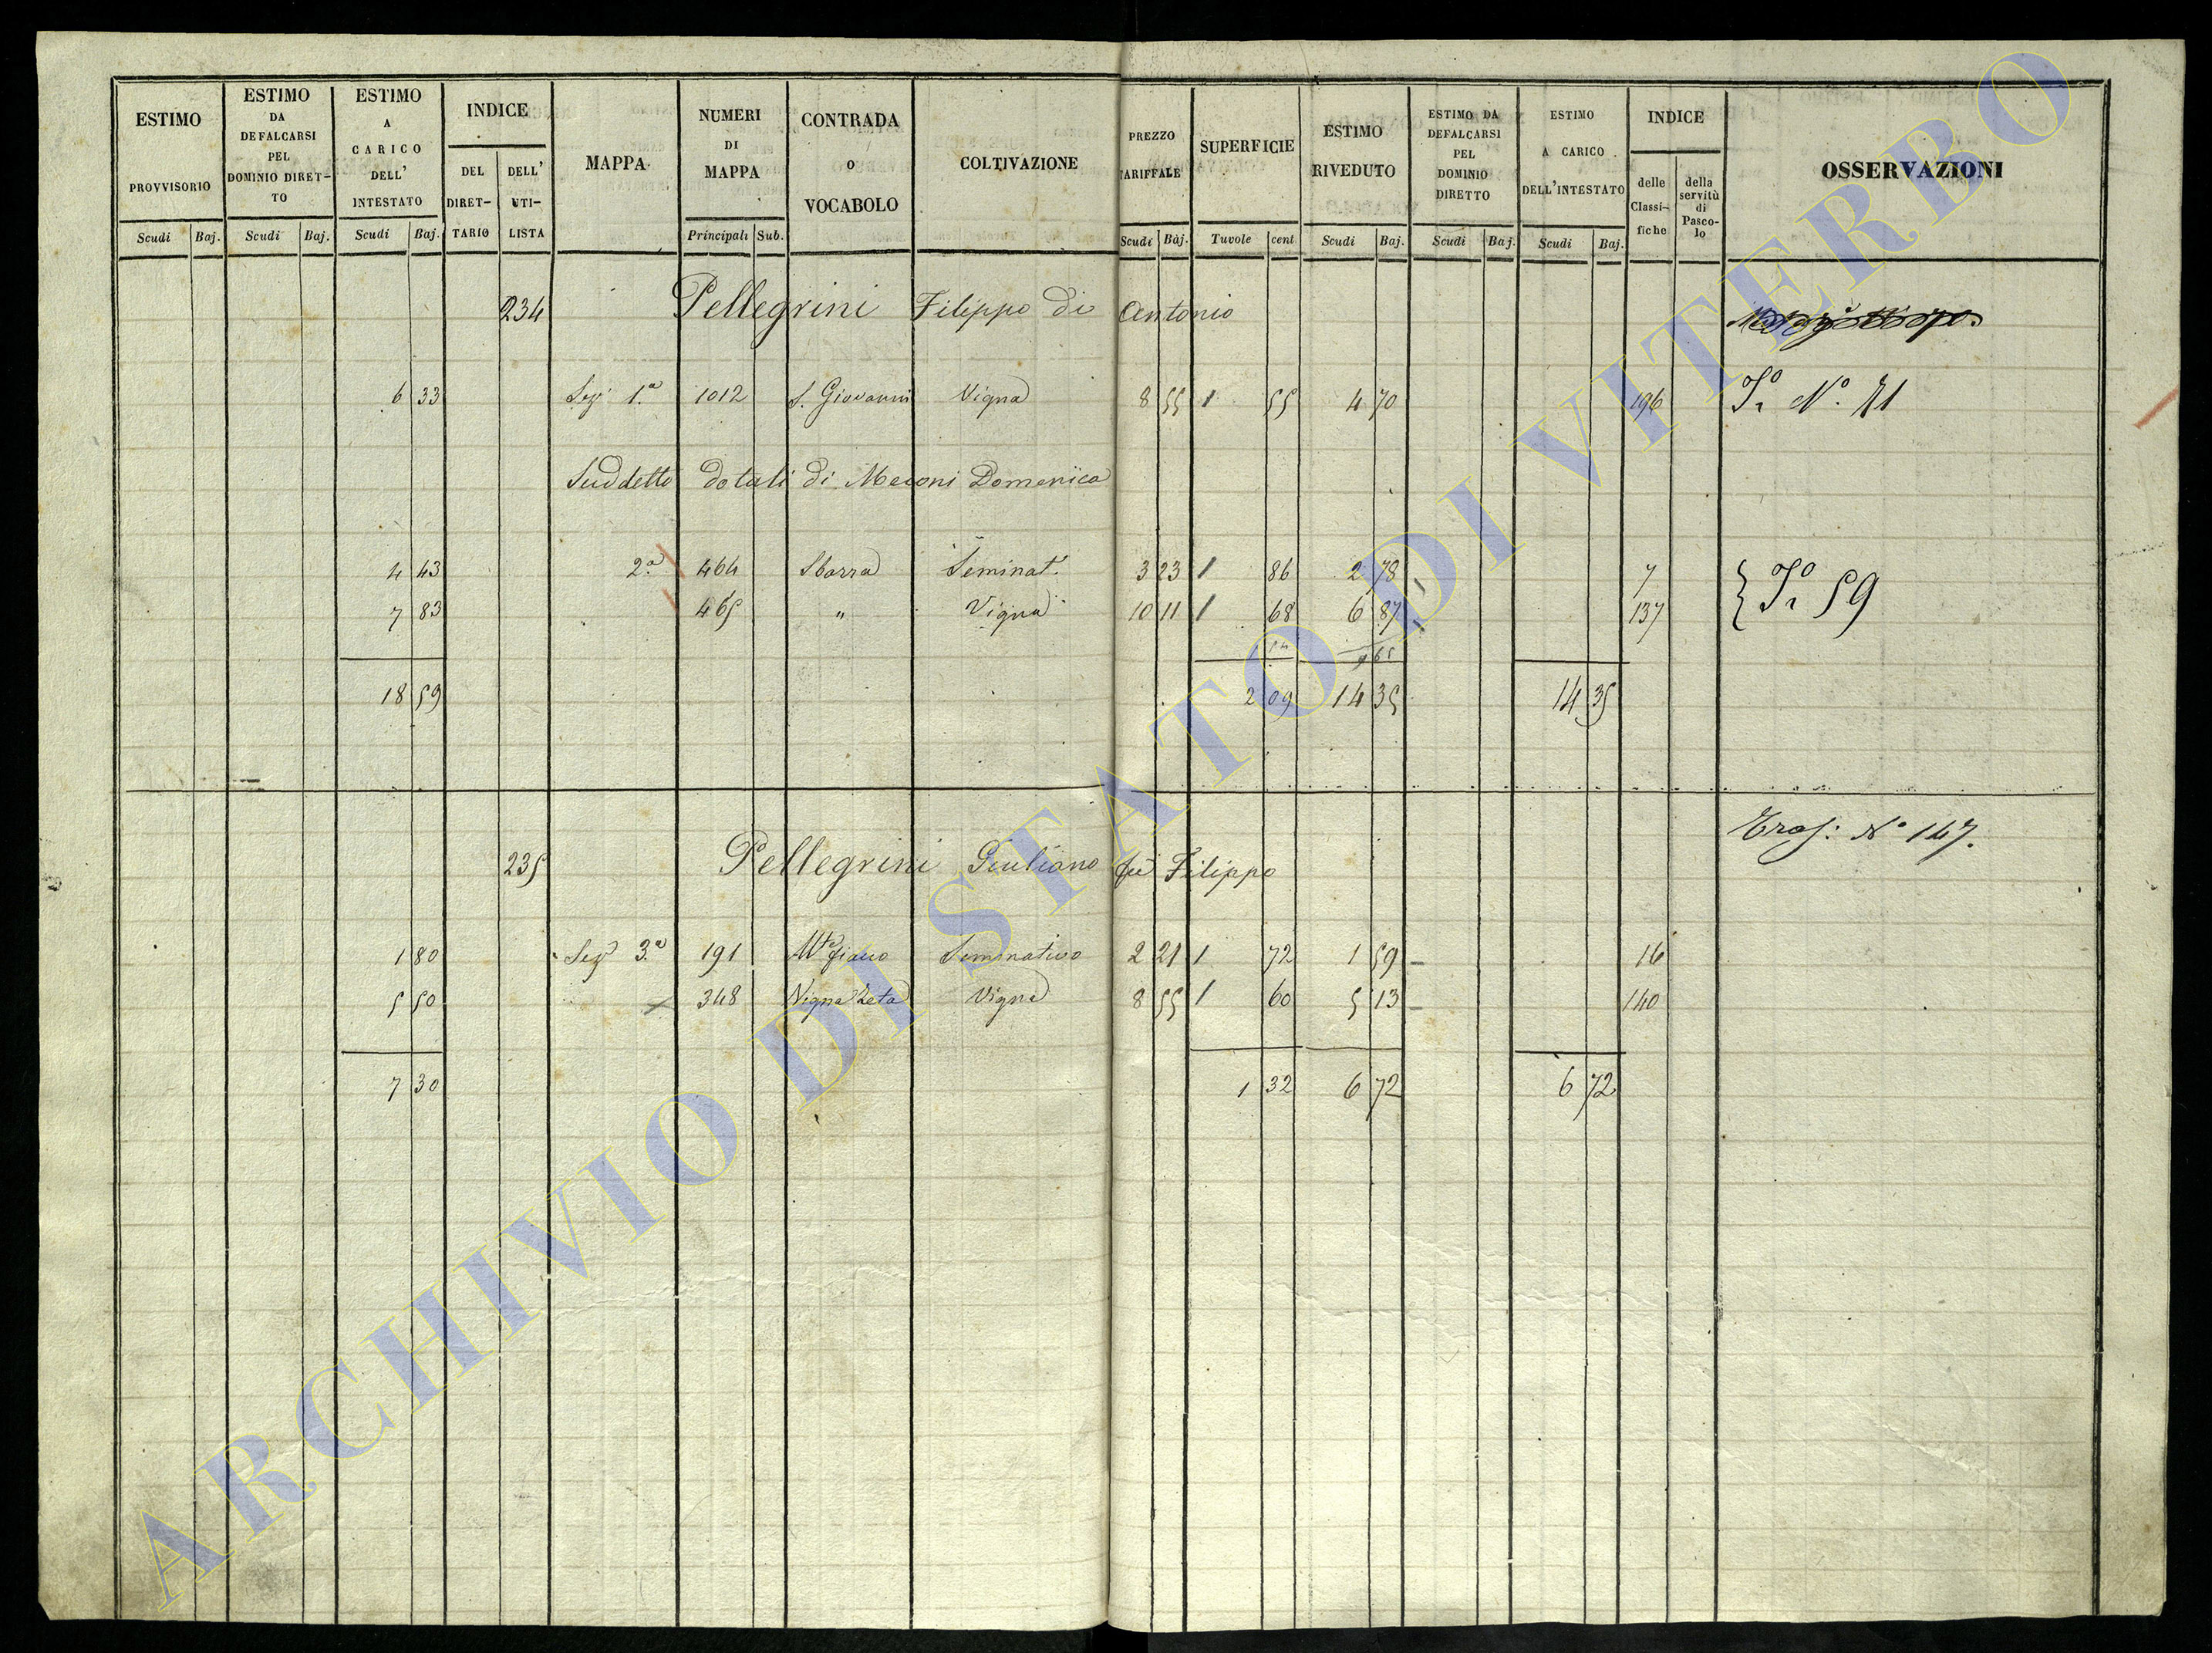 ESTIMO PROVVISORIO Scudi Baj.
ESTIMO DA DEFALCARSI PEL DOMINIO DIRET-TO Scudi Baj.
ESTIMO A CARICO DELL' INTESTATO Scudi Baj.
INDICE DEL DIRET-TARIO DELL' UTI-LISTA
MAPPA
NUMERI DI MAPPA Principali Sub.
CONTRADA o VOCABOLO
COLTIVAZIONE
PREZZO TARIFFALE Scudi Baj.
SUPERFICIE Tavole cent
ESTIMO RIVEDUTO Scudi Baj.
ESTIMO DA DEFALCARSI PEL DOMINIO DIRETTO Scudi Baj.
ESTIMO A CARICO DELL'INTESTATO Scudi Baj.
INDICE delle Classi-fiche della servitù di Pasco-lo
OSSERVAZIONI
234 Pellegrini Filippo di Antonio
6 33 Sez. 1.a 1012 S. Giovanni Vigna 8 55 / 55 4 70 196 N.o 71
Suddetto dotali di Meconi Domenica
4 43 2.a 464 Sbarra Seminat. 3 23 / 86 2 78 7
7 83 465 " Vigna 10 11 / 68 6 87 137 } 59
54 9 65
18 59 2 09 14 35 14 35
Trasp: N.o 147.
235 Pellegrini Giuliano fu Filippo
1 80 Sez. 3.a 191 Seminativo 2 21 / 72 1 59 16
5 50 348 Vigna Vigna 8 55 / 60 5 13 140
7 30 1 32 6 72 6 72
ARCHIVIO DI STATO DI VITERBO